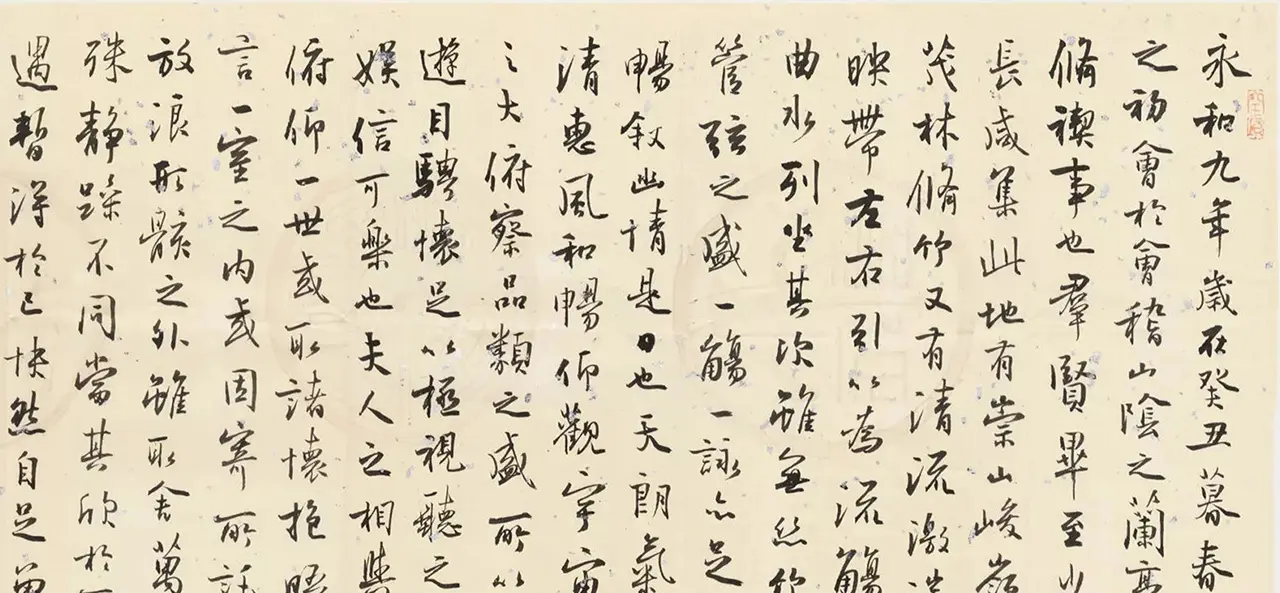 永和九年歲在癸丑暮春
之初會於會稽山陰之蘭亭
脩禊事也羣賢畢至少
長咸集此地有崇山峻嶺
茂林脩竹又有清流激
暎帶左右引以為流觴
曲水列坐其次雖無絲竹
管弦之盛一觴一詠亦足
暢叙幽情是日也天朗氣
清惠風和暢仰觀宇宙
之大俯察品類之盛所以
遊目騁懷足以極視聽之
娛信可樂也夫人之相與
俯仰一世或取諸懷抱晤
言一室之內或因寄所託
放浪形骸之外雖取舍萬
殊靜躁不同當其欣於
遇暫得於己快然自足曾